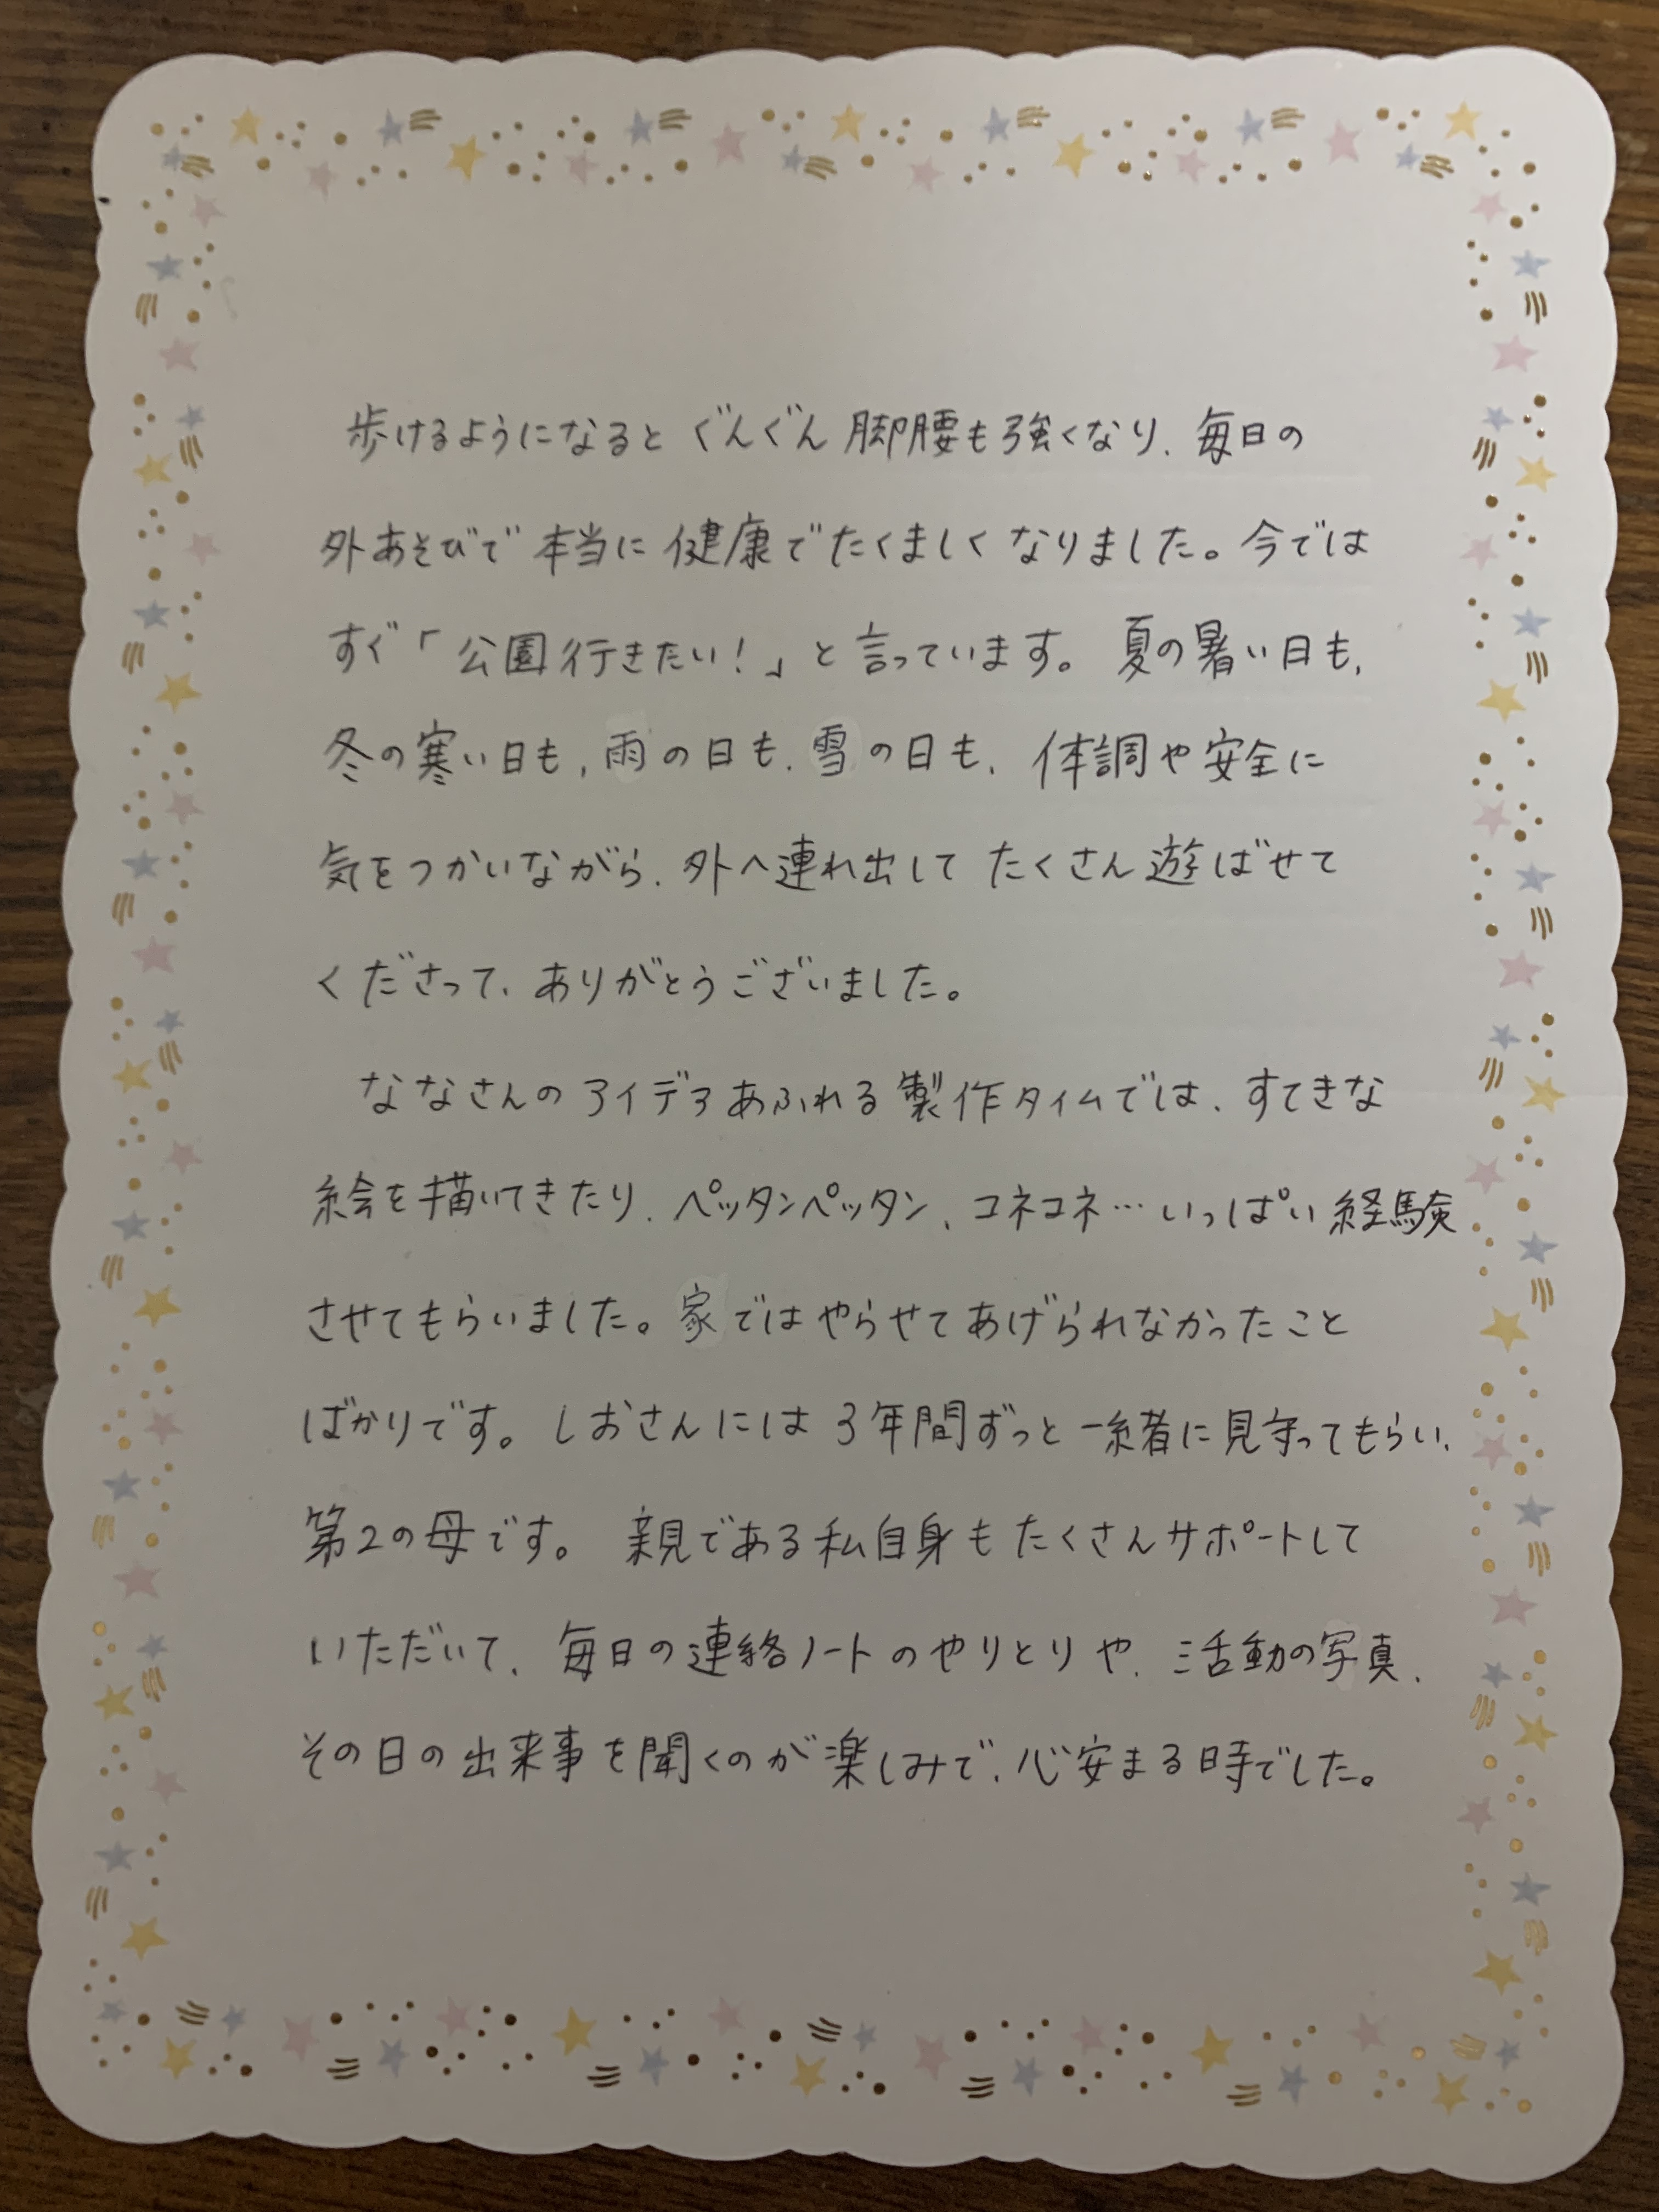 歩けるようになるとぐんぐん脚腰も強くなり、毎日の
外あそびで本当に健康でたくましくなりました。今では
すぐ「公園行きたい！」と言っています。夏の暑い日も、
冬の寒い日も、雨の日も、雪の日も、体調や安全に
気をつかいながら、外へ連れ出してたくさん遊ばせて
くださって、ありがとうございました。
ななさんのアイデアあふれる製作タイムでは、すてきな
絵を描いてきたり、ペッタンペッタン、コネコネ…いっぱい経験
させてもらいました。家ではやらせてあげられなかったこと
ばかりです。しおさんには3年間ずっと一緒に見守ってもらい、
第2の母です。親である私自身もたくさんサポートして
いただいて、毎日の連絡ノートのやりとりや、活動の写真、
その日の出来事を聞くのが楽しみで、心安まる時でした。